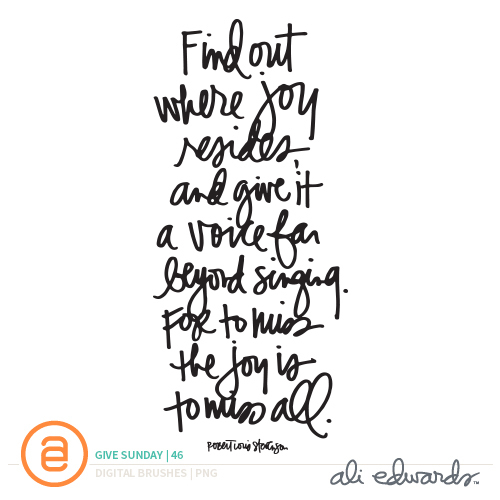 Find out
where joy
resides,
and give it
a voice far
beyond singing.
For to miss
the joy is
to miss all.
Robert Louis Stevenson
GIVE SUNDAY | 46
DIGITAL BRUSHES | PNG
ae
ali edwards™